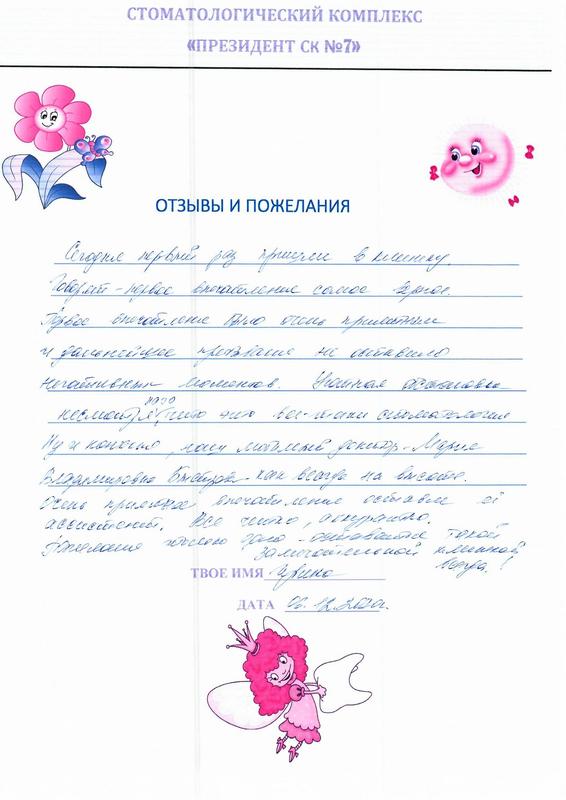 СТОМАТОЛОГИЧЕСКИЙ КОМПЛЕКС
«ПРЕЗИДЕНТ СК №7»
ОТЗЫВЫ И ПОЖЕЛАНИЯ
Сегодня первый раз пришли в клинику.
Говорят - первое впечатление самое верное.
Первое впечатление было очень приятным
и дальнейшее не оставило
негативных моментов. Уютная обстановка
на то
несмотря что это все-таки стоматология
Ну и конечно, наш любимый доктор - Мария
Владимировна - как всегда на высоте.
Очень приятное впечатление оставил её
ассистент. Все чисто, аккуратно.
Пожелания только одно - оставаться такой
замечательной клиникой
всегда!
ТВОЕ ИМЯ Ирина
ДАТА 06.12.2020г.